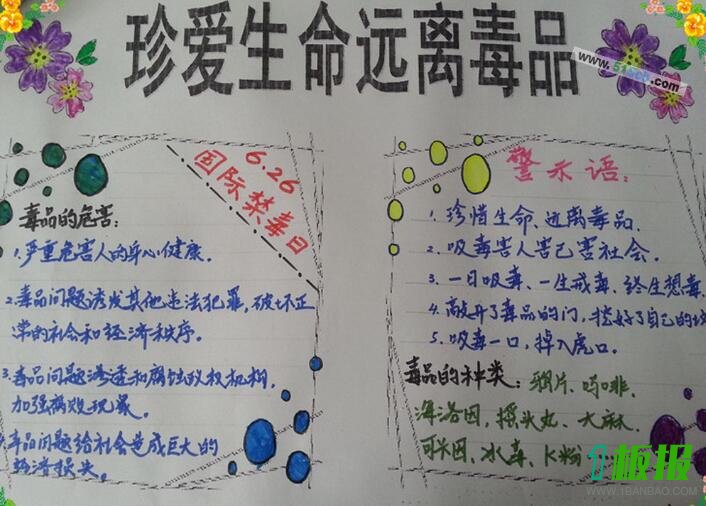 珍爱生命远离毒品
www.51sch.com
6.26
国际禁毒日
毒品的危害:
1.严重危害人的身心健康.
2.毒品问题诱发其他违法犯罪,破坏正
常的社会和经济秩序。
3.毒品问题渗透和腐蚀政权机构,
加强腐败现象。
毒品问题给社会造成巨大的
经济损失。
警示语:
1.珍惜生命、远离毒品.
2.吸毒害人害己害社会.
3.一日吸毒、一生戒毒、终生想毒
4.敲开了毒品的门,挖好了自己的坟
5.吸毒一口,掉入虎口.
毒品的种类:鸦片、吗啡、
海洛因、摇头丸、大麻、
可卡因、冰毒、K粉
板报
WWW.1BANBAO.COM